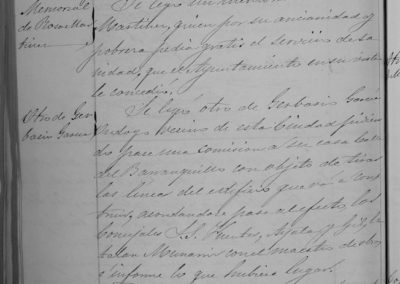 Memorial
de Rosa Mar
tinez
Se leyó un
Martinez, quien por su ancianidad y
pobreza pedia gratis el servicio de sa
nidad, que el Ayuntamiento en su vista
le concedió.
Otro de Ger
basio Garcia
Se leyó otro de Gerbasio Garcia
vecino de esta Ciudad pidien
do pase una comision a su casa
del Barranquillo con objeto de tirar
las linea del edificio que va a cons
truir, acordandose pase al efecto los
Concejales S.S. Fuentes, Ayala y
con el maestro de obras
e informe lo que hubiere lugar.